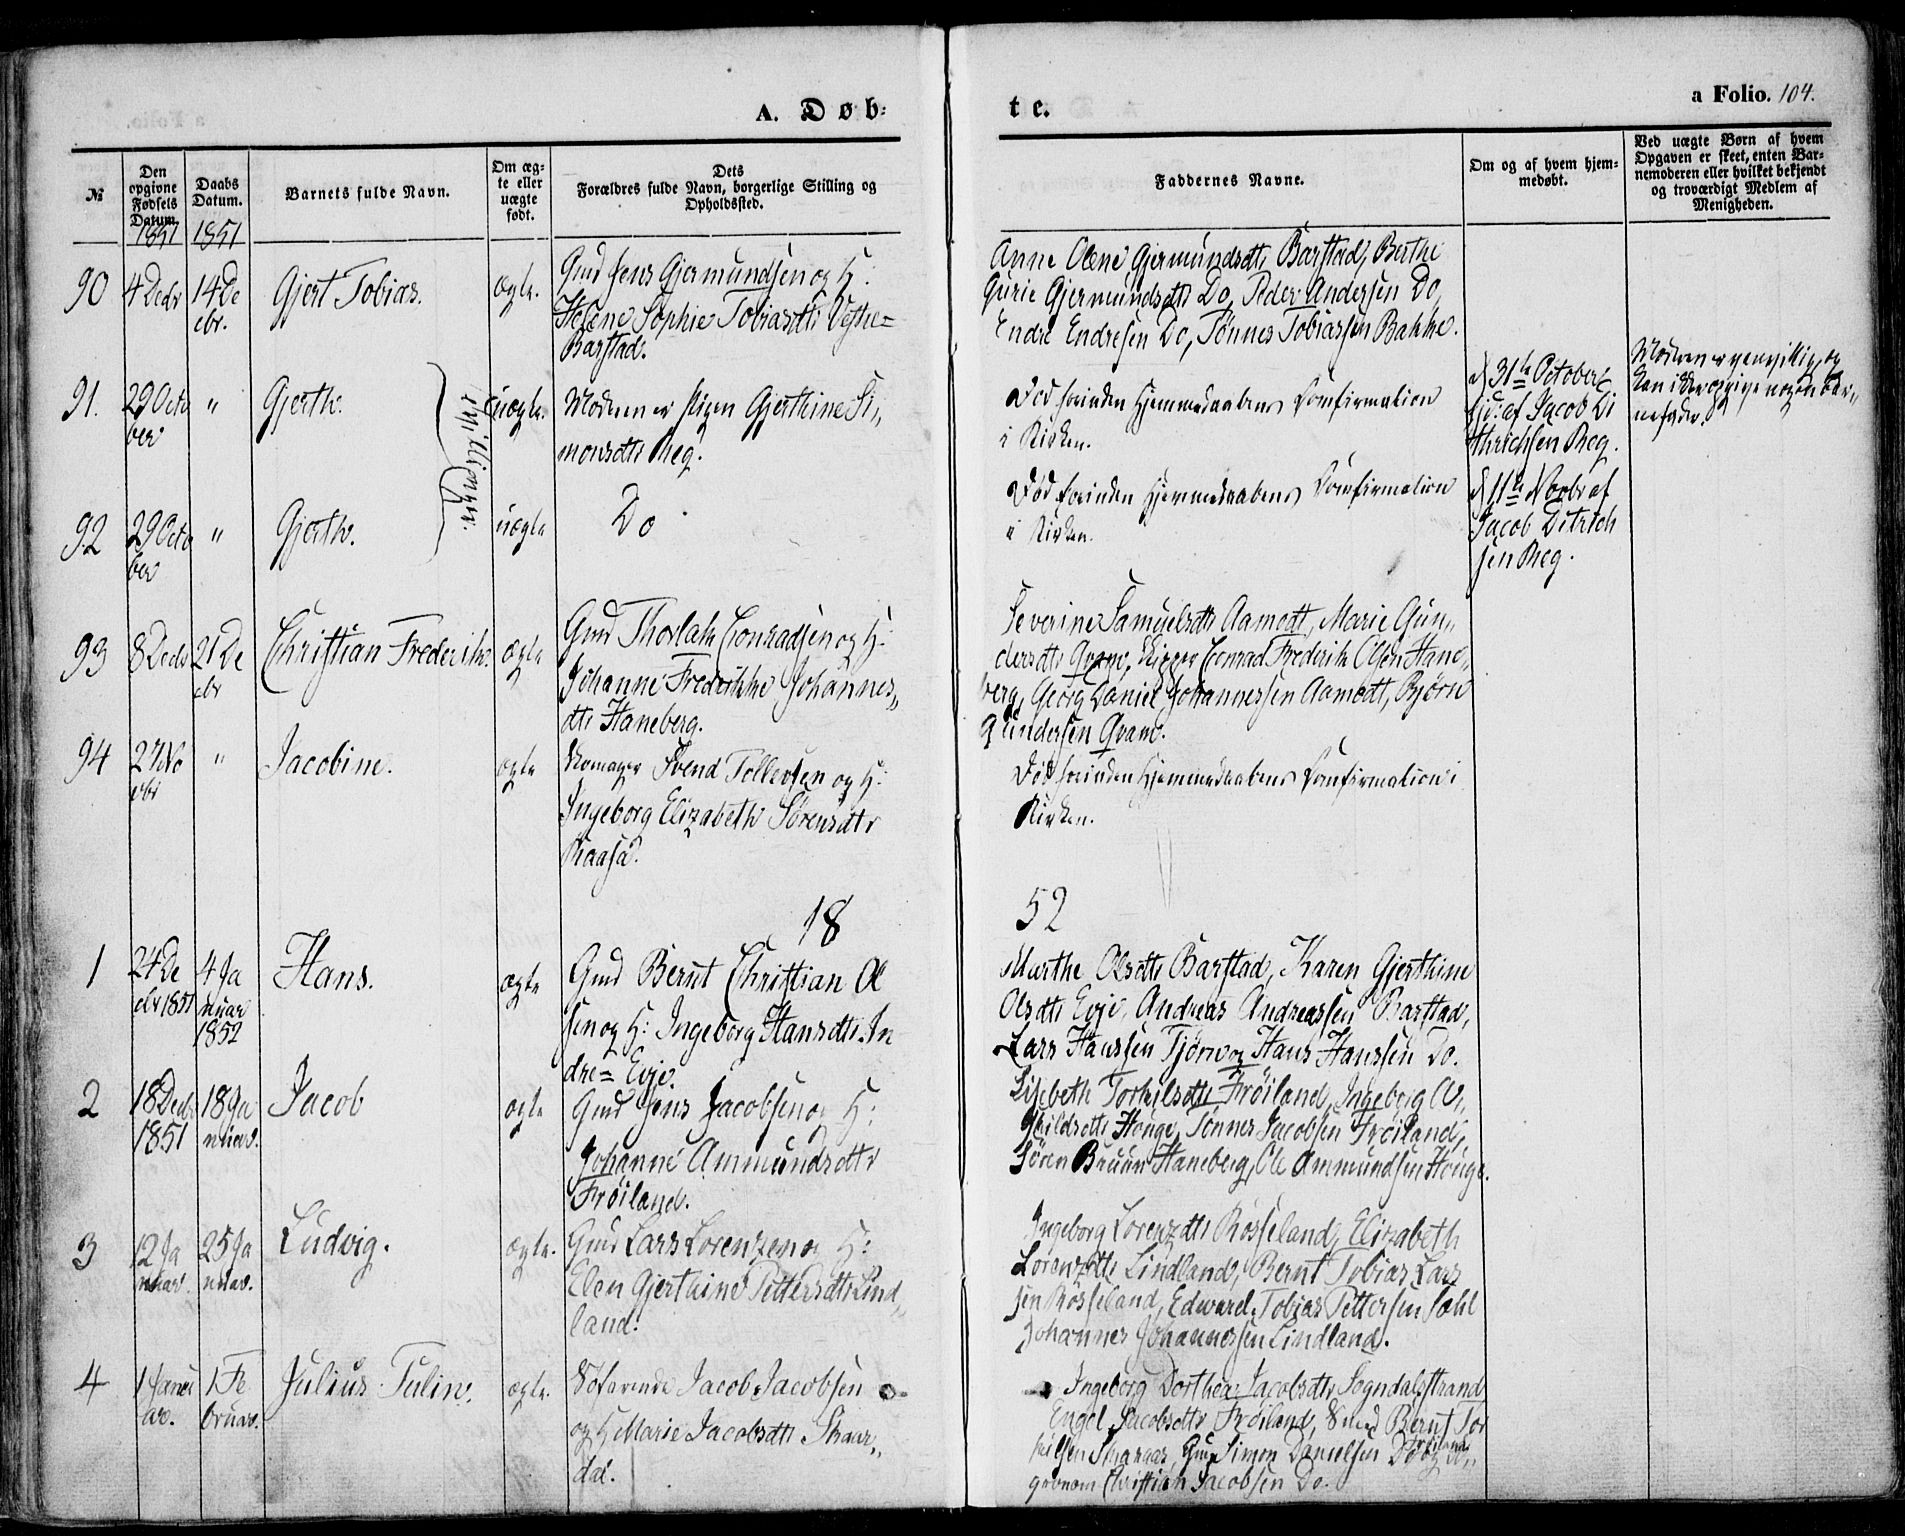 A. Døb=
te.
a Folio. 104.
№
Den opgivne Fødsels Datum.
Daabs Datum.
Barnets fulde Navn.
Om ægte eller uægte født.
Dets
Forældres fulde Navn, borgerlige Stilling og
Opholdssted.
Faddernes Navne.
Om og af hvem hjem-
medøbt.
Ved uægte Børn af hvem
Opgaven er skeet, enten Bar-
nemoderen eller hvilket bekjendt
og troværdigt Medlem af
Menigheden.
1851 1851
90 4 Decbr 14 De
cbr.
Gjert Tobias.
ægte.
Gmd Jens Gjermundsen og H:
Helene Sophie Tobiasdtr Vestre=
Barstad.
Anne Olene Gjermundsdtr Barstad, Berthe
Gurie Gjermundsdtr Do, Peder Andersen Do,
Endre Endresen Do, Tønnes Tobiassen Bakke.
91. 29 Octo
ber
"
Gjerth.
tvillinger
uægte.
Moderen er Pigen Gjerthine Si,,
monsdtr Reg.
Død forinden Hjemmedaabens Confirmation
i Kirken.
d 31te October
hjd: af Jacob Di
thrichsen Reg.
Moderen er
kan ikke opgive nogen Bar,,
nefader.
92 29 Octo
ber
"
Gjerth.
uægte
Do
Død forinden Hjemmedaabens Confirmation
i Kirken.
d 11te Novbr af
Jacob Ditrich
sen Reg.
93 8 Decbr 21 De
cbr
Christian Frederik.
ægte
Gmd Thorlak Conradsen og H:
Johanne Fredrikke Johannes,,
dtr Haneberg.
Severine Samuelsdtr Aamodt, Marie Gun,,
dersdtr Qvam, Skipper Conrad Frederik Olsen Hane,,
berg, Georg Daniel Johannessen Aamodt, Bjørn
Gundersen Qvam.
94 27 No
vbr
"
Jacobine.
ægte
Skomager Svend Tollevsen og H:
Ingeborg Elizabeth Sørensdtr
Raasa.
Død forinden Hjemmedaabens Confirmation i
Kirken.
18
52
1 24 De
cbr 1851
4 Ja
nuar
1852
Hans.
ægte
Gmd Bernt Christian Ol
sen og H: Ingeborg Hansdtr In
dre= Evje.
Marthe Olsdtr Barstad, Karen Gjerthine
Olsdtr Evje, Andreas Andreassen Barstad,
Lars Hanssen Tjørn og Hans Hanssen Do.
2 18 Decbr
1851
18 Ja
nuar.
Jacob
ægte
Gmd Jens Jacobsen og H:
Johanne Ammundsdtr
Frøiland.
Lisebeth Torkilsdtr Frøiland, Ingeborg
Houge, Tønnes Jacobsen Frøiland,
Søren Bruun Haneberg, Ole Ammundsen Houge.
3 12 Ja
nuar.
25 Ja
nuar.
Ludvig.
ægte.
Gmd Lars Lorenzen og H:
Elen Gjerthine Pettersdtr Lind,,
land.
Ingeborg Lorenzdtr Rosseland, Elizabeth
Lorenzdtr Lindland, Bernt Tobias Lars
sen Rosseland, Edward Tobias Pettersen
Johannes Johannessen Lindland.
4 1 Janu
ar.
1 Fe
bruar.
Julius Tulin.
ægte.
Søfarende Jacob Jacobsen
og H Marie Jacobsdtr Skaar,,
dal.
Ingeborg Dorthea Jacobsdtr Sogndalsstrand
Engel Jacobsdtr Frøiland, Smed Bernt Tor
kilsen Skaraas, Gmd Simon Danielsen Do og
Frøiland
Christian Jacobsen Do.